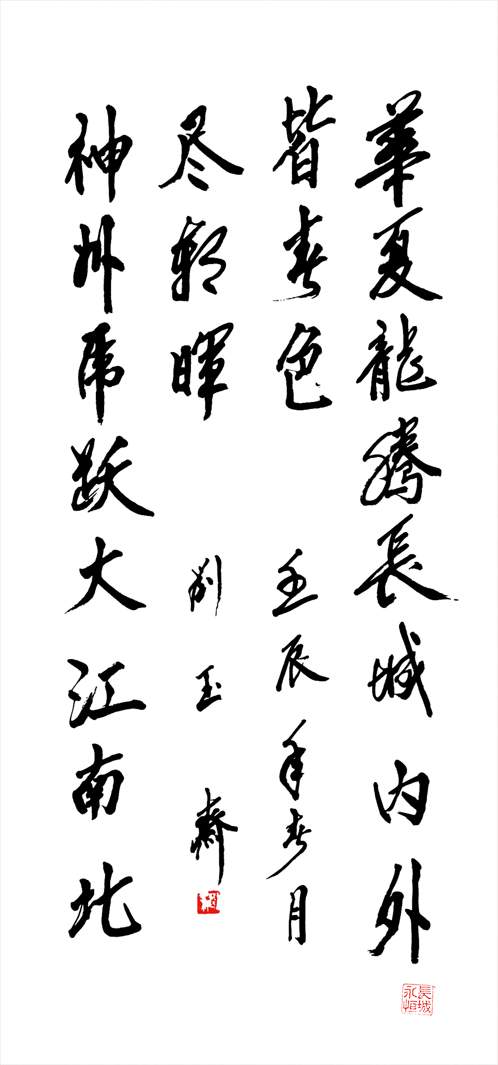 華夏龍騰長城内外
皆春色
壬辰年春月
神州虎跃大江南北
尽朝暉
刘玉齋
長城永恒